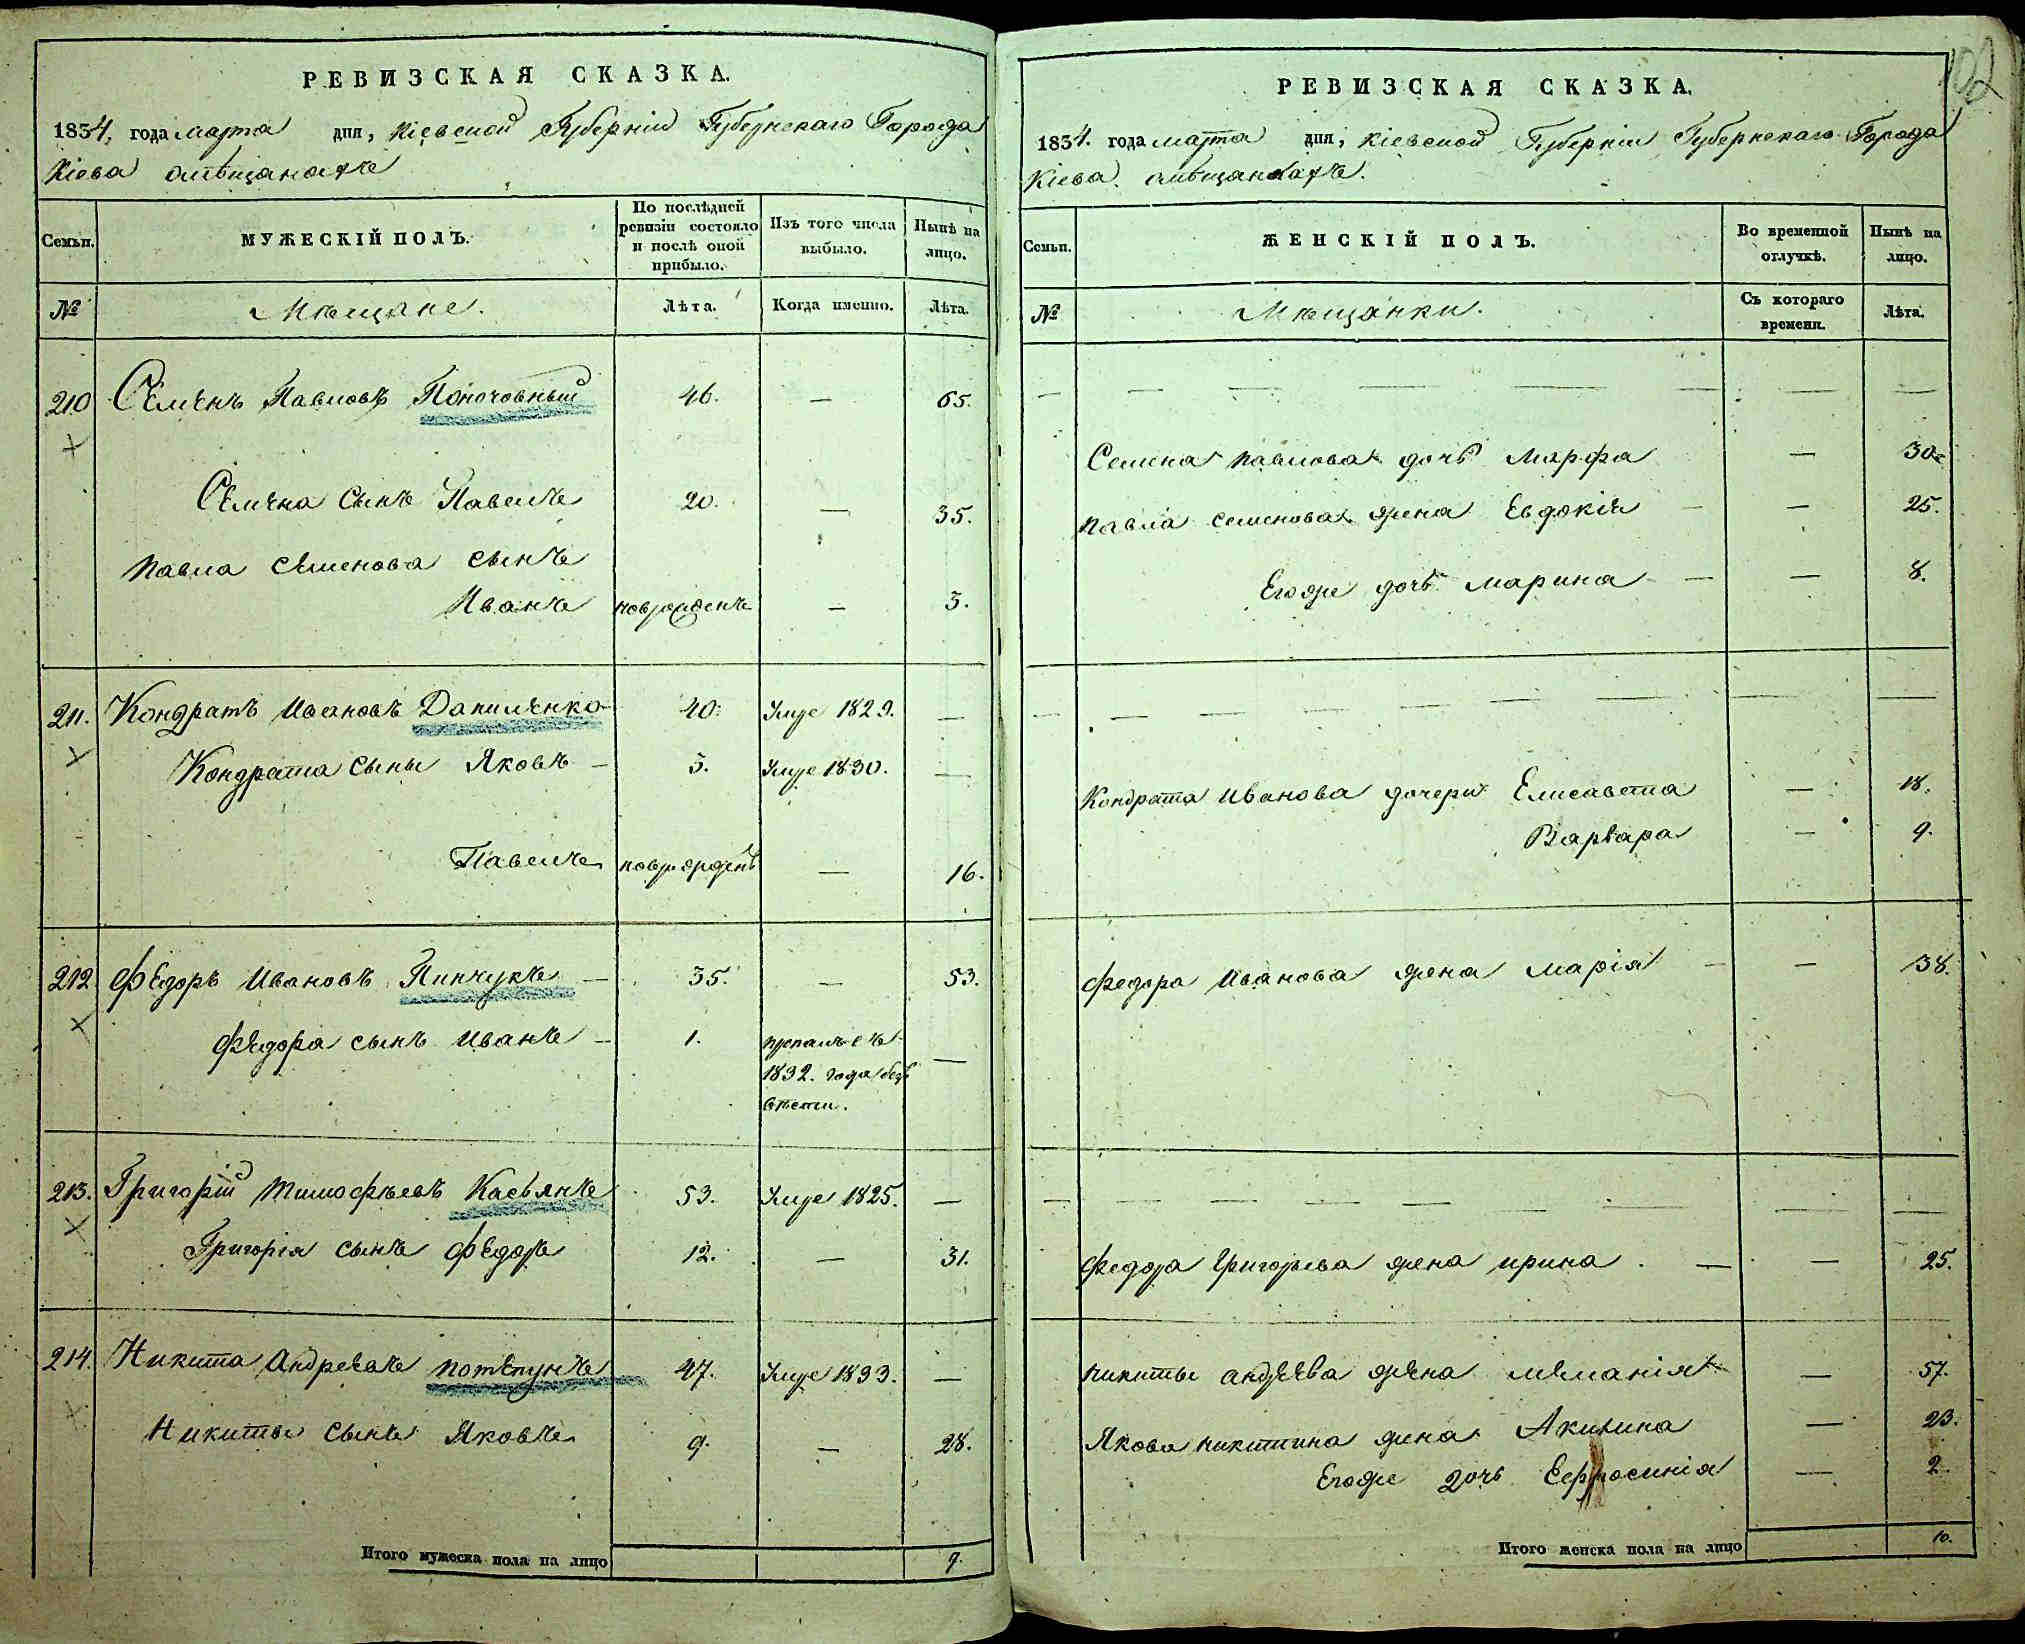 102
РЕВИЗСКАЯ СКАЗКА.
1834. года марта дня, Кіевской Губерніи Губернскаго Города
Кіева о мѣщанахъ
Семьи. МУЖЕСКІЙ ПОЛЪ. По послѣдней ревизіи состояло и послѣ оной прибыло. Изъ того числа выбыло. Нынѣ на лицо.
№ Мѣщане. Лѣта. Когда именно. Лѣта.
210 Семенъ Павловъ Поночовный 46. — 65.
Семена сынъ Павелъ 20. — 35.
Павла Семенова сынъ
Иванъ новорожденъ — 3.
211. Кондратъ Ивановъ Даниленко 40. Умре 1829. —
Кондрата сыны Яковъ — 5. Умре 1830. —
Павелъ новорожденъ — 16.
212 Федоръ Ивановъ Пинчукъ — 35. — 53.
Федора сынъ Иванъ — 1. пропалъ съ —
1832. года безъ
вѣсти.
213. Григорій Тимофѣевъ Касьянъ 53. Умре 1825. —
Григорія сынъ Федоръ 12. — 31.
214. Никита Андреевъ Потапунъ 47. Умре 1833. —
Никиты сынъ Яковъ 9. — 28.
Итого мужеска пола на лицо 9.
РЕВИЗСКАЯ СКАЗКА.
1834. года марта дня, Кіевской Губерніи Губернскаго Города
Кіева о мѣщанкахъ.
Семьи. ЖЕНСКІЙ ПОЛЪ. Во временной отлучкѣ. Нынѣ на лицо.
№ Мѣщанки. Съ котораго времени. Лѣта.
Семена Павлова дочь Марфа — 30.
Павла Семенова жена Евдокія — — 25.
Егоже дочь Марина — — 8.
Кондрата Иванова дочери Елисавета — 18.
Варвара — 9.
Федора Иванова жена Марія — — 38.
Федора Григорьева жена Ирина. — — 25.
Никиты Андреева жена Меланія — 57.
Якова Никитина жена Акилина — 23.
Егоже дочь Ефросинія — 2.
Итого женска пола на лицо 10.